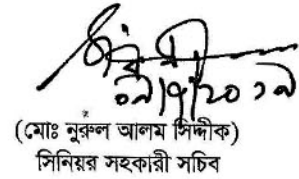 ০৯/৭/২০১৯
(মোঃ নুরুল আলম সিদ্দীক)
সিনিয়র সহকারী সচিব